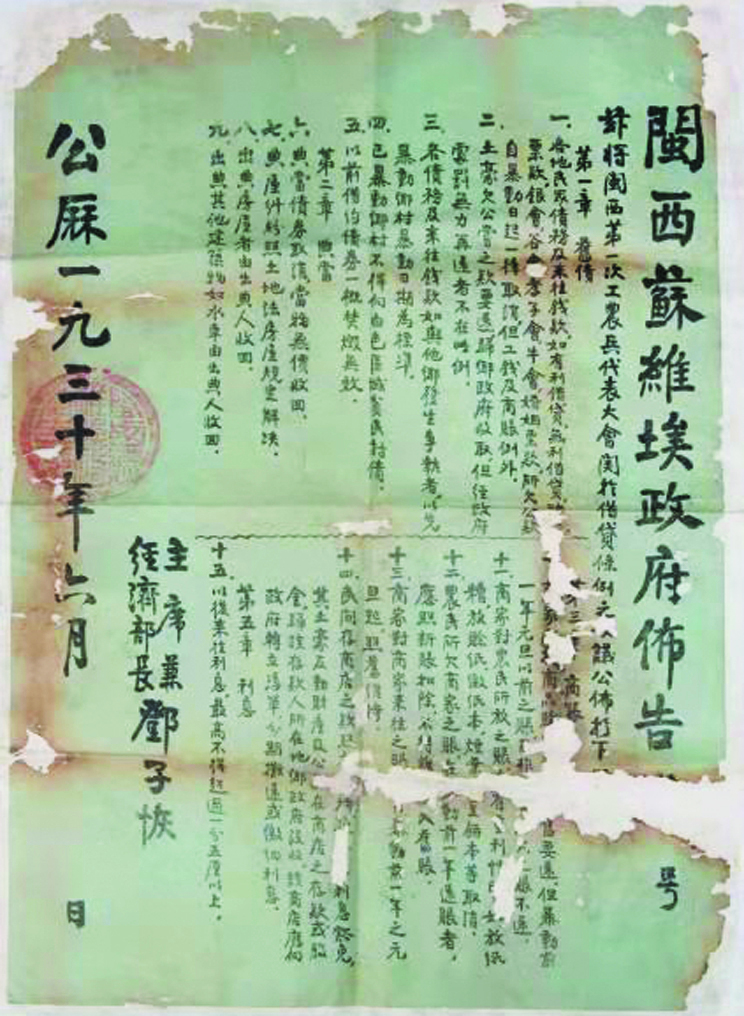 閩西蘇維埃政府佈告 号
將閩西第一次工農兵代表大會関於借貸條例之議公佈於下
第一章 舊債
一、各地民眾債務及來往錢款如有利借貸無利借貸
票款、銀會、谷會、孝子會、牛會、婚姻票款、所欠公款
自暴動日起一律取消但工錢及商賬例外。
二、土豪欠公嘗之款要還歸鄉政府收取、但經政府
處罰無力再還者不在此例。
三、各債務及來往錢款如與他鄉發生爭執者、以先
暴動鄉村暴動日期為標準。
四、已暴動鄉村不得向白色區域貧民討債。
五、以前借約債券一概焚燬無效。
第二章 典當
六、典當債券取消當物無價收回。
七、典產係照土地法房屋規定解決。
八、出典房屋者由出典人收回。
九、出典其他建築物如水車由出典人收回。
第三章 商賬
舊要還、但暴動前
一年元旦以前之賬不還。
十一、商家對農民所放之賬有利性如放紙
糟、放賒紙、做紙本、煙葉豆餅本等取消。
十二、農民所欠商家之賬在動前一年還賬者、
應照新賬扣除、不得入舊賬。
十三、商家對商家來往之賬動前一年之元
旦起、照舊維持。
十四、民間存商店之款利息豁免、
其土豪反動財產及公在商店之存款或股
金、歸該存款人所在地鄉政府沒收、該商店應向
政府轉立憑單、分期攤還或繳回利息。
第五章 利息
十五、以後來往利息、最高不得超過一分五厘以上。
主席兼
經濟部長 鄧子恢
公曆一九三十年六月 日